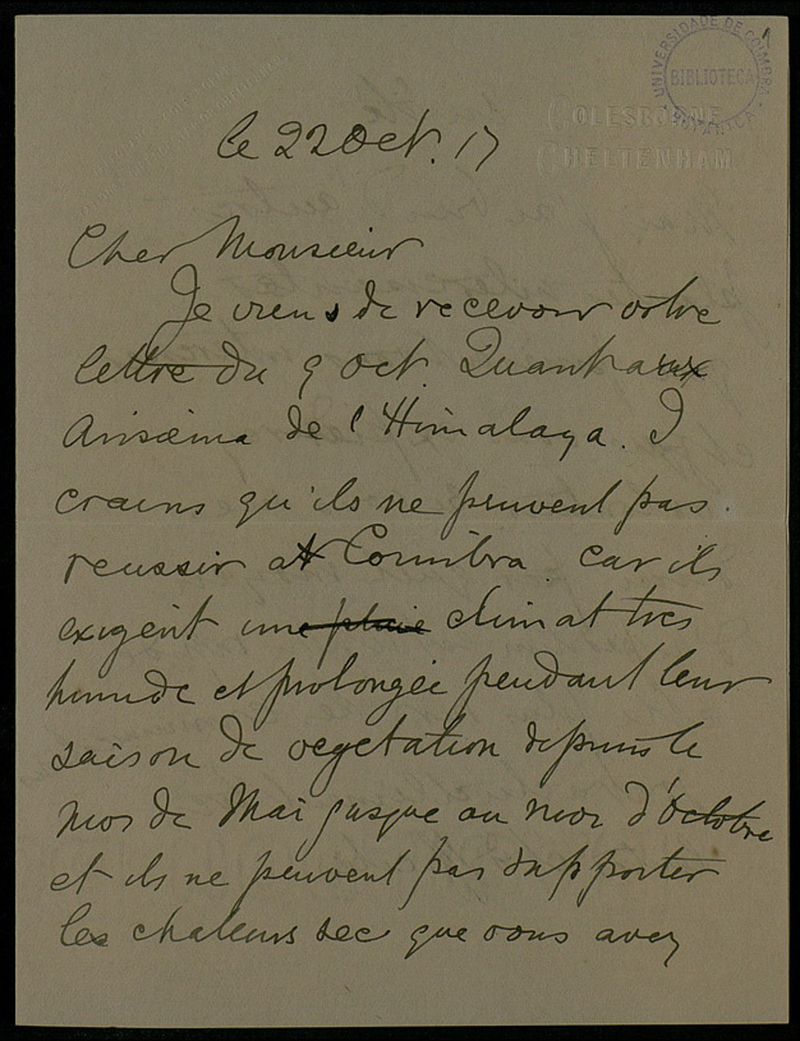 UNIVERSIDADE DE COIMBRA
BIBLIOTECA
BOTANICA
COLESBORNE
CHELTENHAM
le 22 Oct. 17
Cher Monsieur
Je viens de recevoir votre
lettre du 9 Oct. Quant aux
Arisæma de l'Himalaya. I
crains qu'ils ne peuvent pas
reussir at Coimbra. car ils
exigent une pluie climat tres
humide et prolongée pendant leur
saison de vegetation depuis le
mos de Mai jusque au mos d'Octobre
et ils ne peuvent pas supporter
les chaleurs sec que vous avez